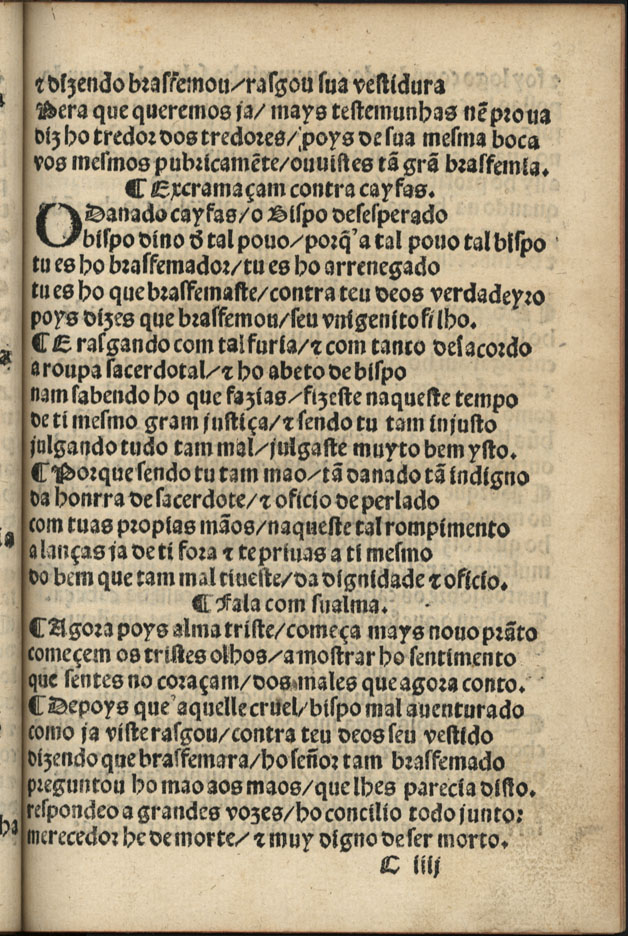 ⁊ dizendo brasfemou/rasgou sua vestidura
Pera que queremos ja/ mays testemunhas nẽ prova
diz ho tredor dos tredores/ poys de sua mesma boca
vos mesmos pubricamẽte/ouvistes tã grã brasfemia.
¶ Excramaçam contra cayfas.
O Danado cayfas/o Bispo desesperado
bispo dino ð tal pouo/porq̃ a tal pouo tal bispo
tu es ho brasfemador/tu es ho arrenegado
tu es ho que brasfemaste/contra teu deos verdadeyro
poys dizes que brasfemou/seu vnigenito filho.
¶ E rasgando com tal furia/⁊ com tanto desacordo
a roupa sacerdotal/⁊ ho abeto de bispo
nam sabendo ho que fazias/fizeste naqueste tempo
de ti mesmo gram justiça/⁊ sendo tu tam injusto
julgando tudo tam mal/julgaste muyto bem ysto.
¶ Porque sendo tu tam mao/tã danado tã indigno
da honrra de sacerdote/⁊ oficio de perlado
com tuas propias mãos/naqueste tal rompimento
alanças ja de ti fora ⁊ te priuas a ti mesmo
do bem que tam mal tiueste/da dignidade ⁊ oficio.
¶ Fala com sualma.
¶ Agora poys alma triste/começa mays nouo prãto
começem os tristes olhos/a mostrar ho sentimento
que sentes no coraçam/dos males que agora conto.
¶ Depoys que aquelle cruel/bispo mal auenturado
como ja viste rasgou/contra teu deos seu vestido
dizendo que brasfemara/ho señor tam brasfemado
preguntou ho mao aos maos/que lhes parecia disto.
respondeo a grandes vozes/ho concilio todo junto:
merecedor he de morte/⁊ muy digno de ser morto.
C iiij